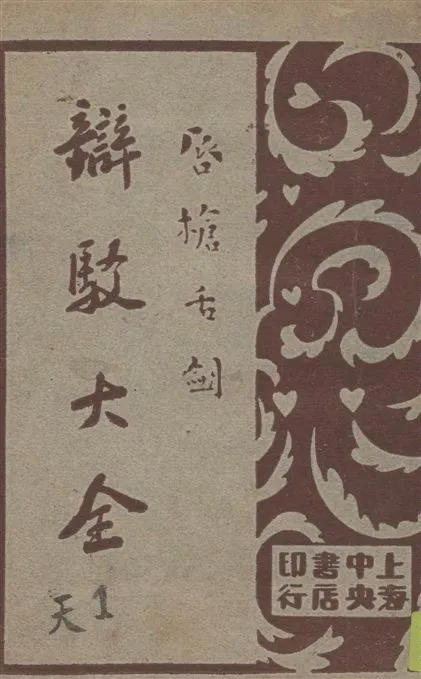 唇槍舌劍
辯駁大全
天1
上海
中央
書店
印行